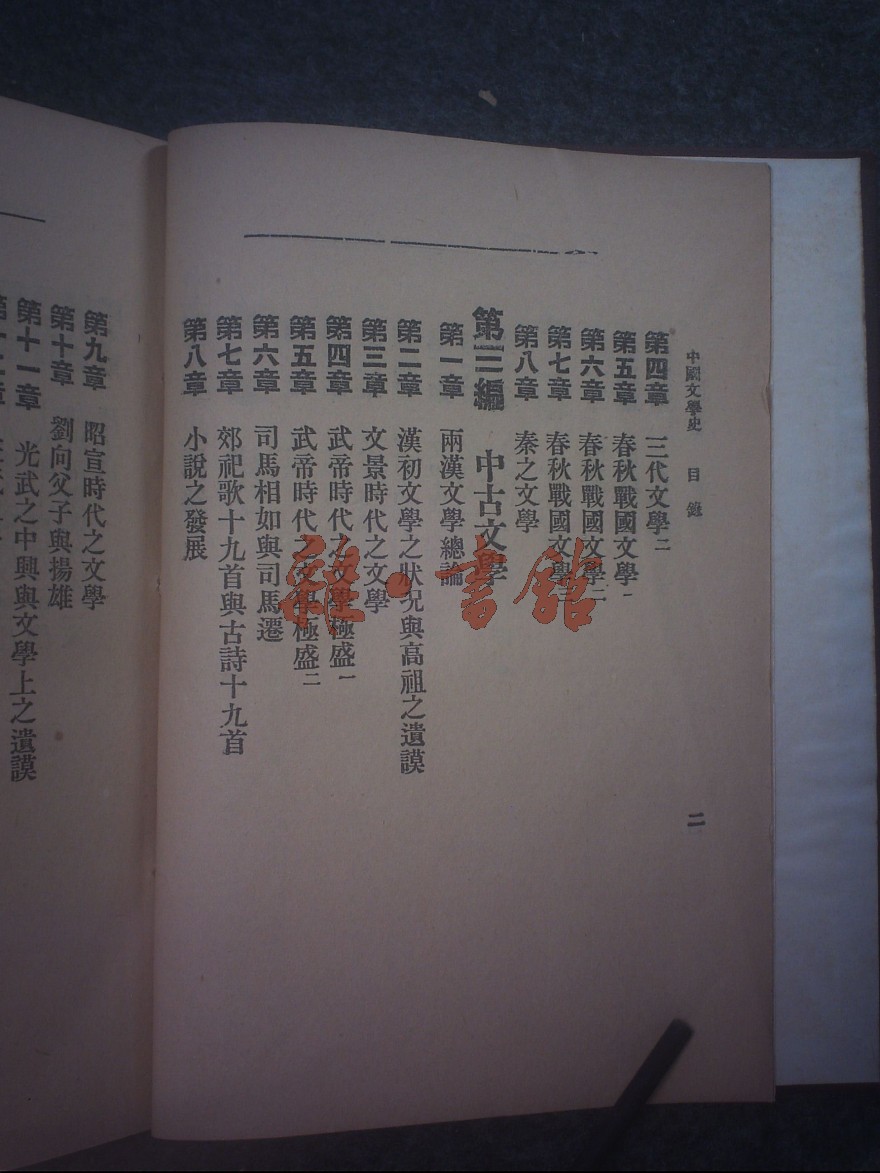 中國文學史 目錄 二
第四章 三代文學二
第五章 春秋戰國文學一
第六章 春秋戰國文學二
第七章 春秋戰國文學
第八章 秦之文學
第三編 中古文學
第一章 兩漢文學總論
第二章 漢初文學之狀況與高祖之遺謨
第三章 文景時代之文學
第四章 武帝時代之文學極盛一
第五章 武帝時代之文學極盛二
第六章 司馬相如與司馬遷
第七章 郊祀歌十九首與古詩十九首
第八章 小說之發展
第九章 昭宣時代之文學
第十章 劉向父子與揚雄
第十一章 光武之中興與文學上之遺謨
雜·書館